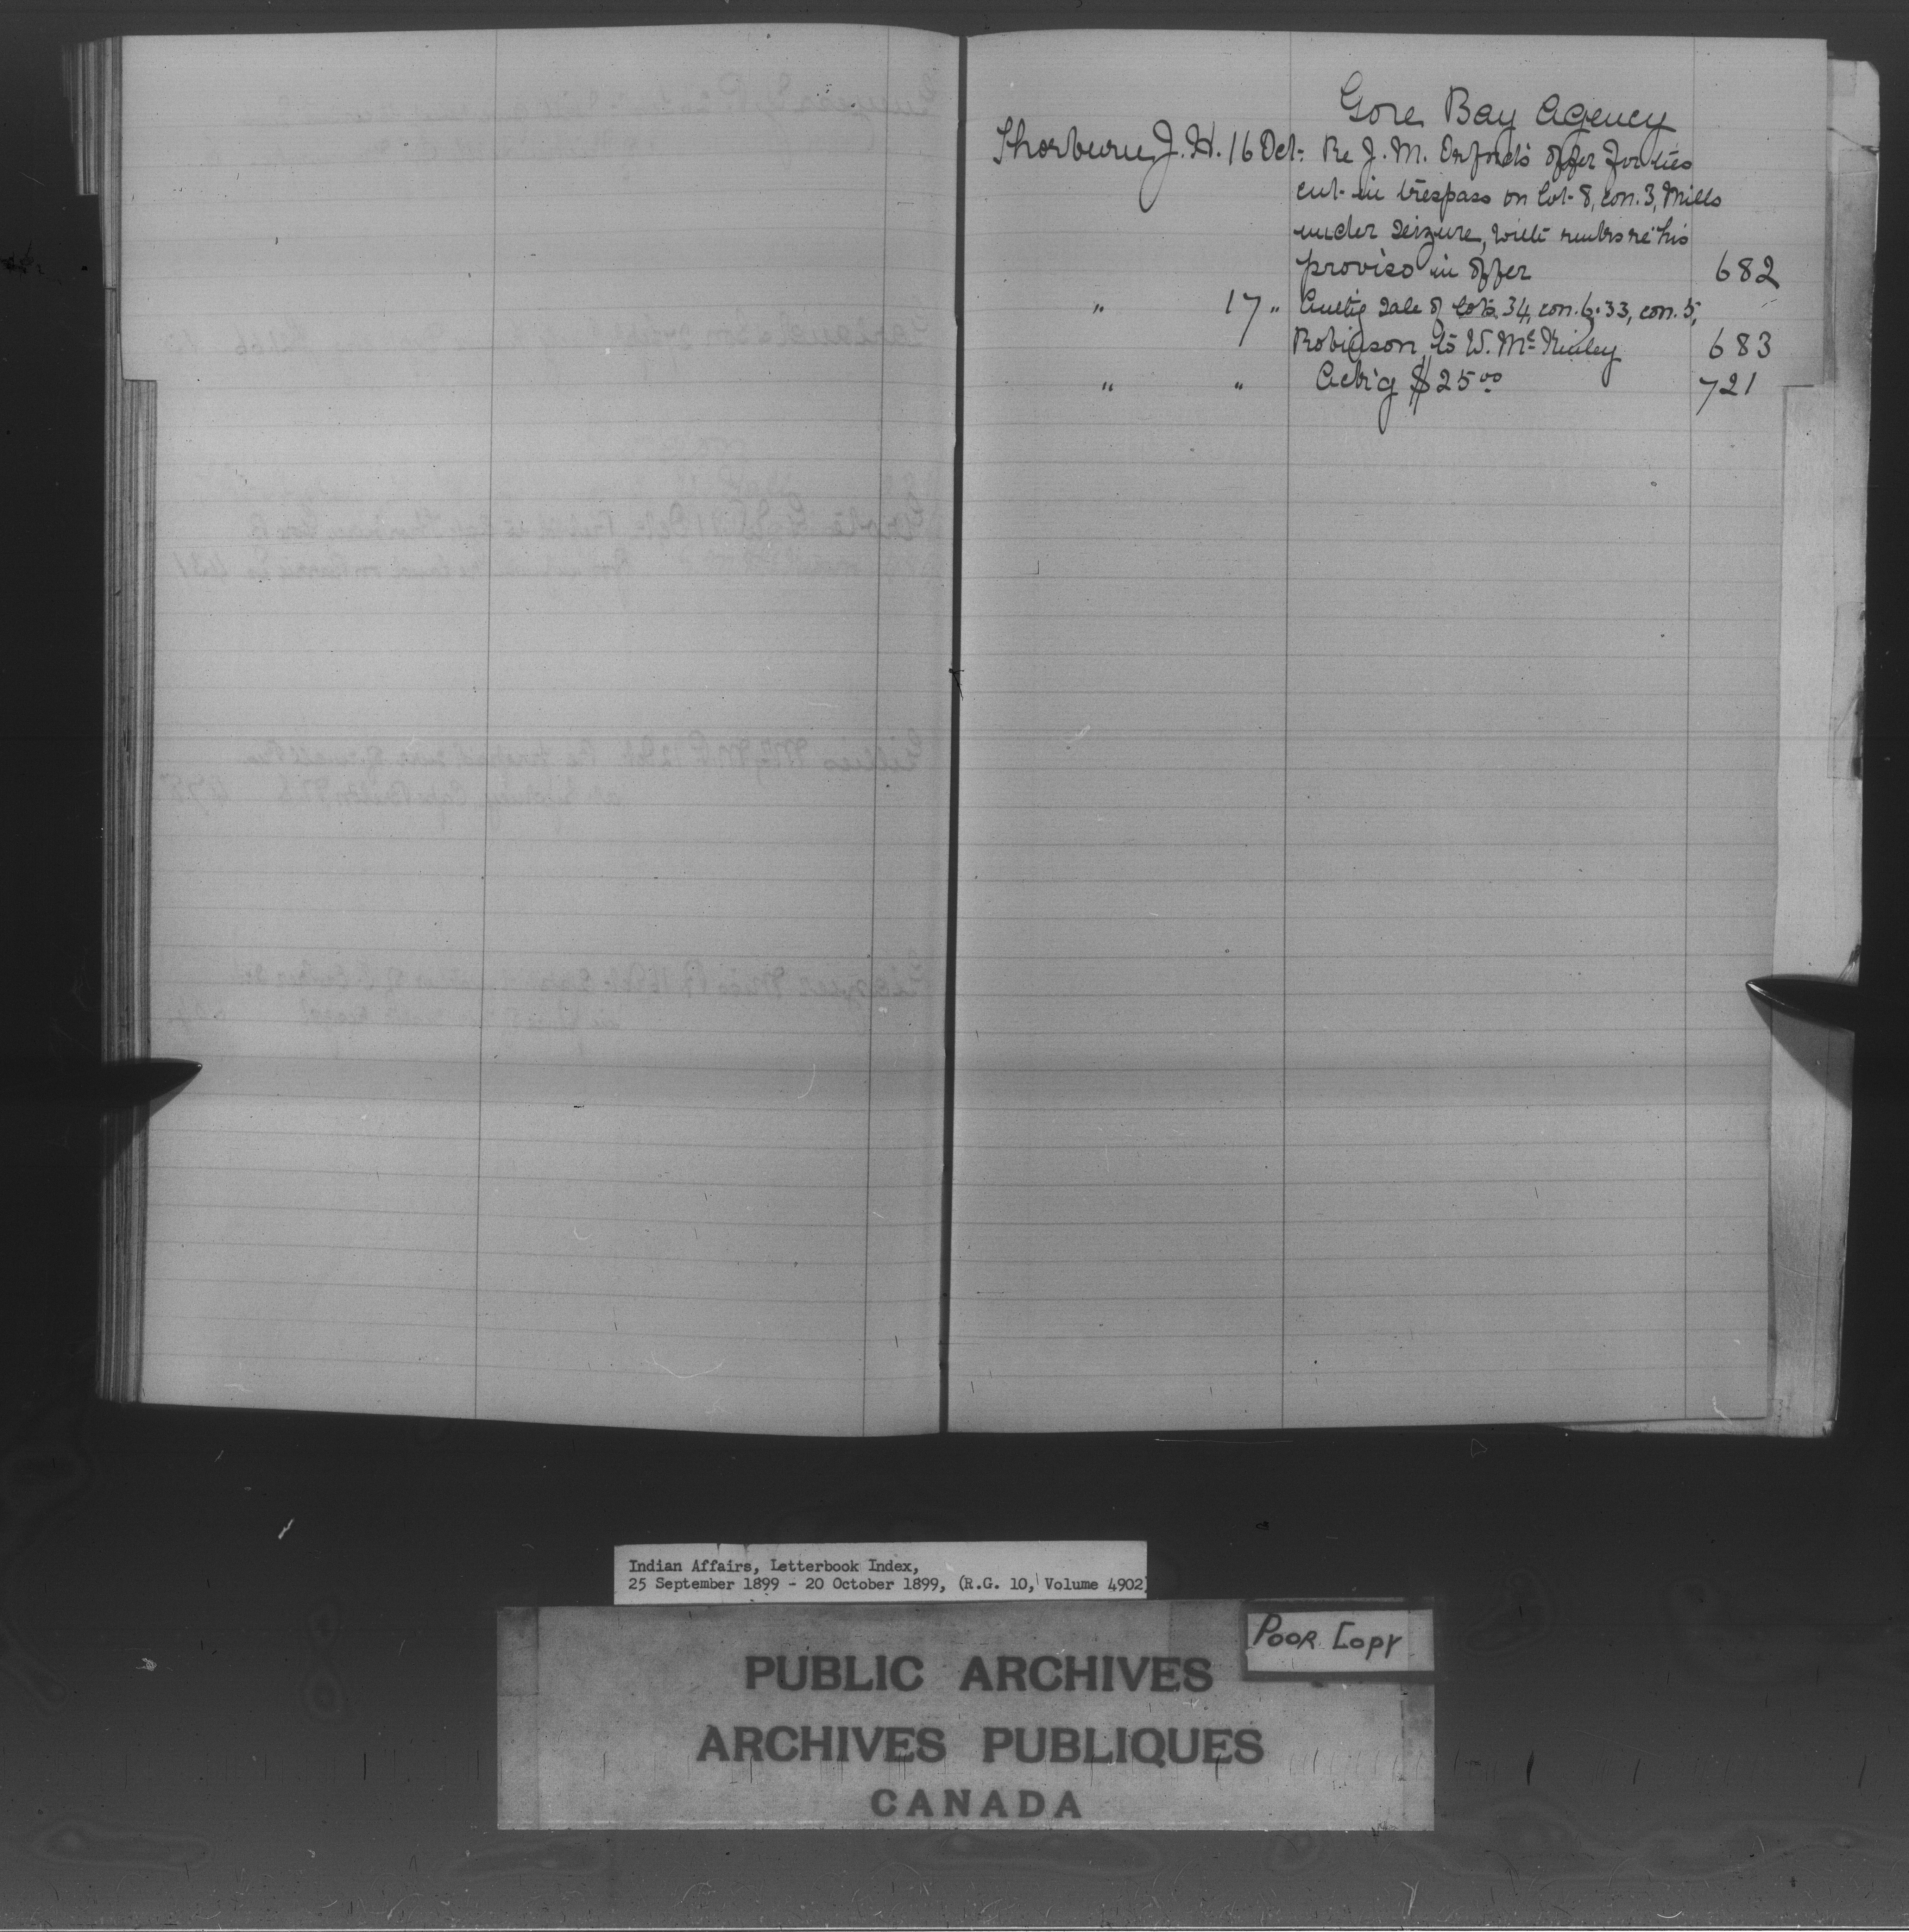 Gore Bay Agency
Thorburn J. H. 16 Oct. Re J. M. Orford's offer for ties
cut in trespass on lot 8, con. 3, Mills
under seizure, with re his
proviso in offer 682
" 17 " sale of lots 34, con. 6. 33, con. 5,
Robinson to W. McKinley 683
" " Ack'g $25 00 721
Indian Affairs, Letterbook Index,
25 September 1899 - 20 October 1899, (R.G. 10, Volume 4902)
POOR COPY
PUBLIC ARCHIVES
ARCHIVES PUBLIQUES
CANADA